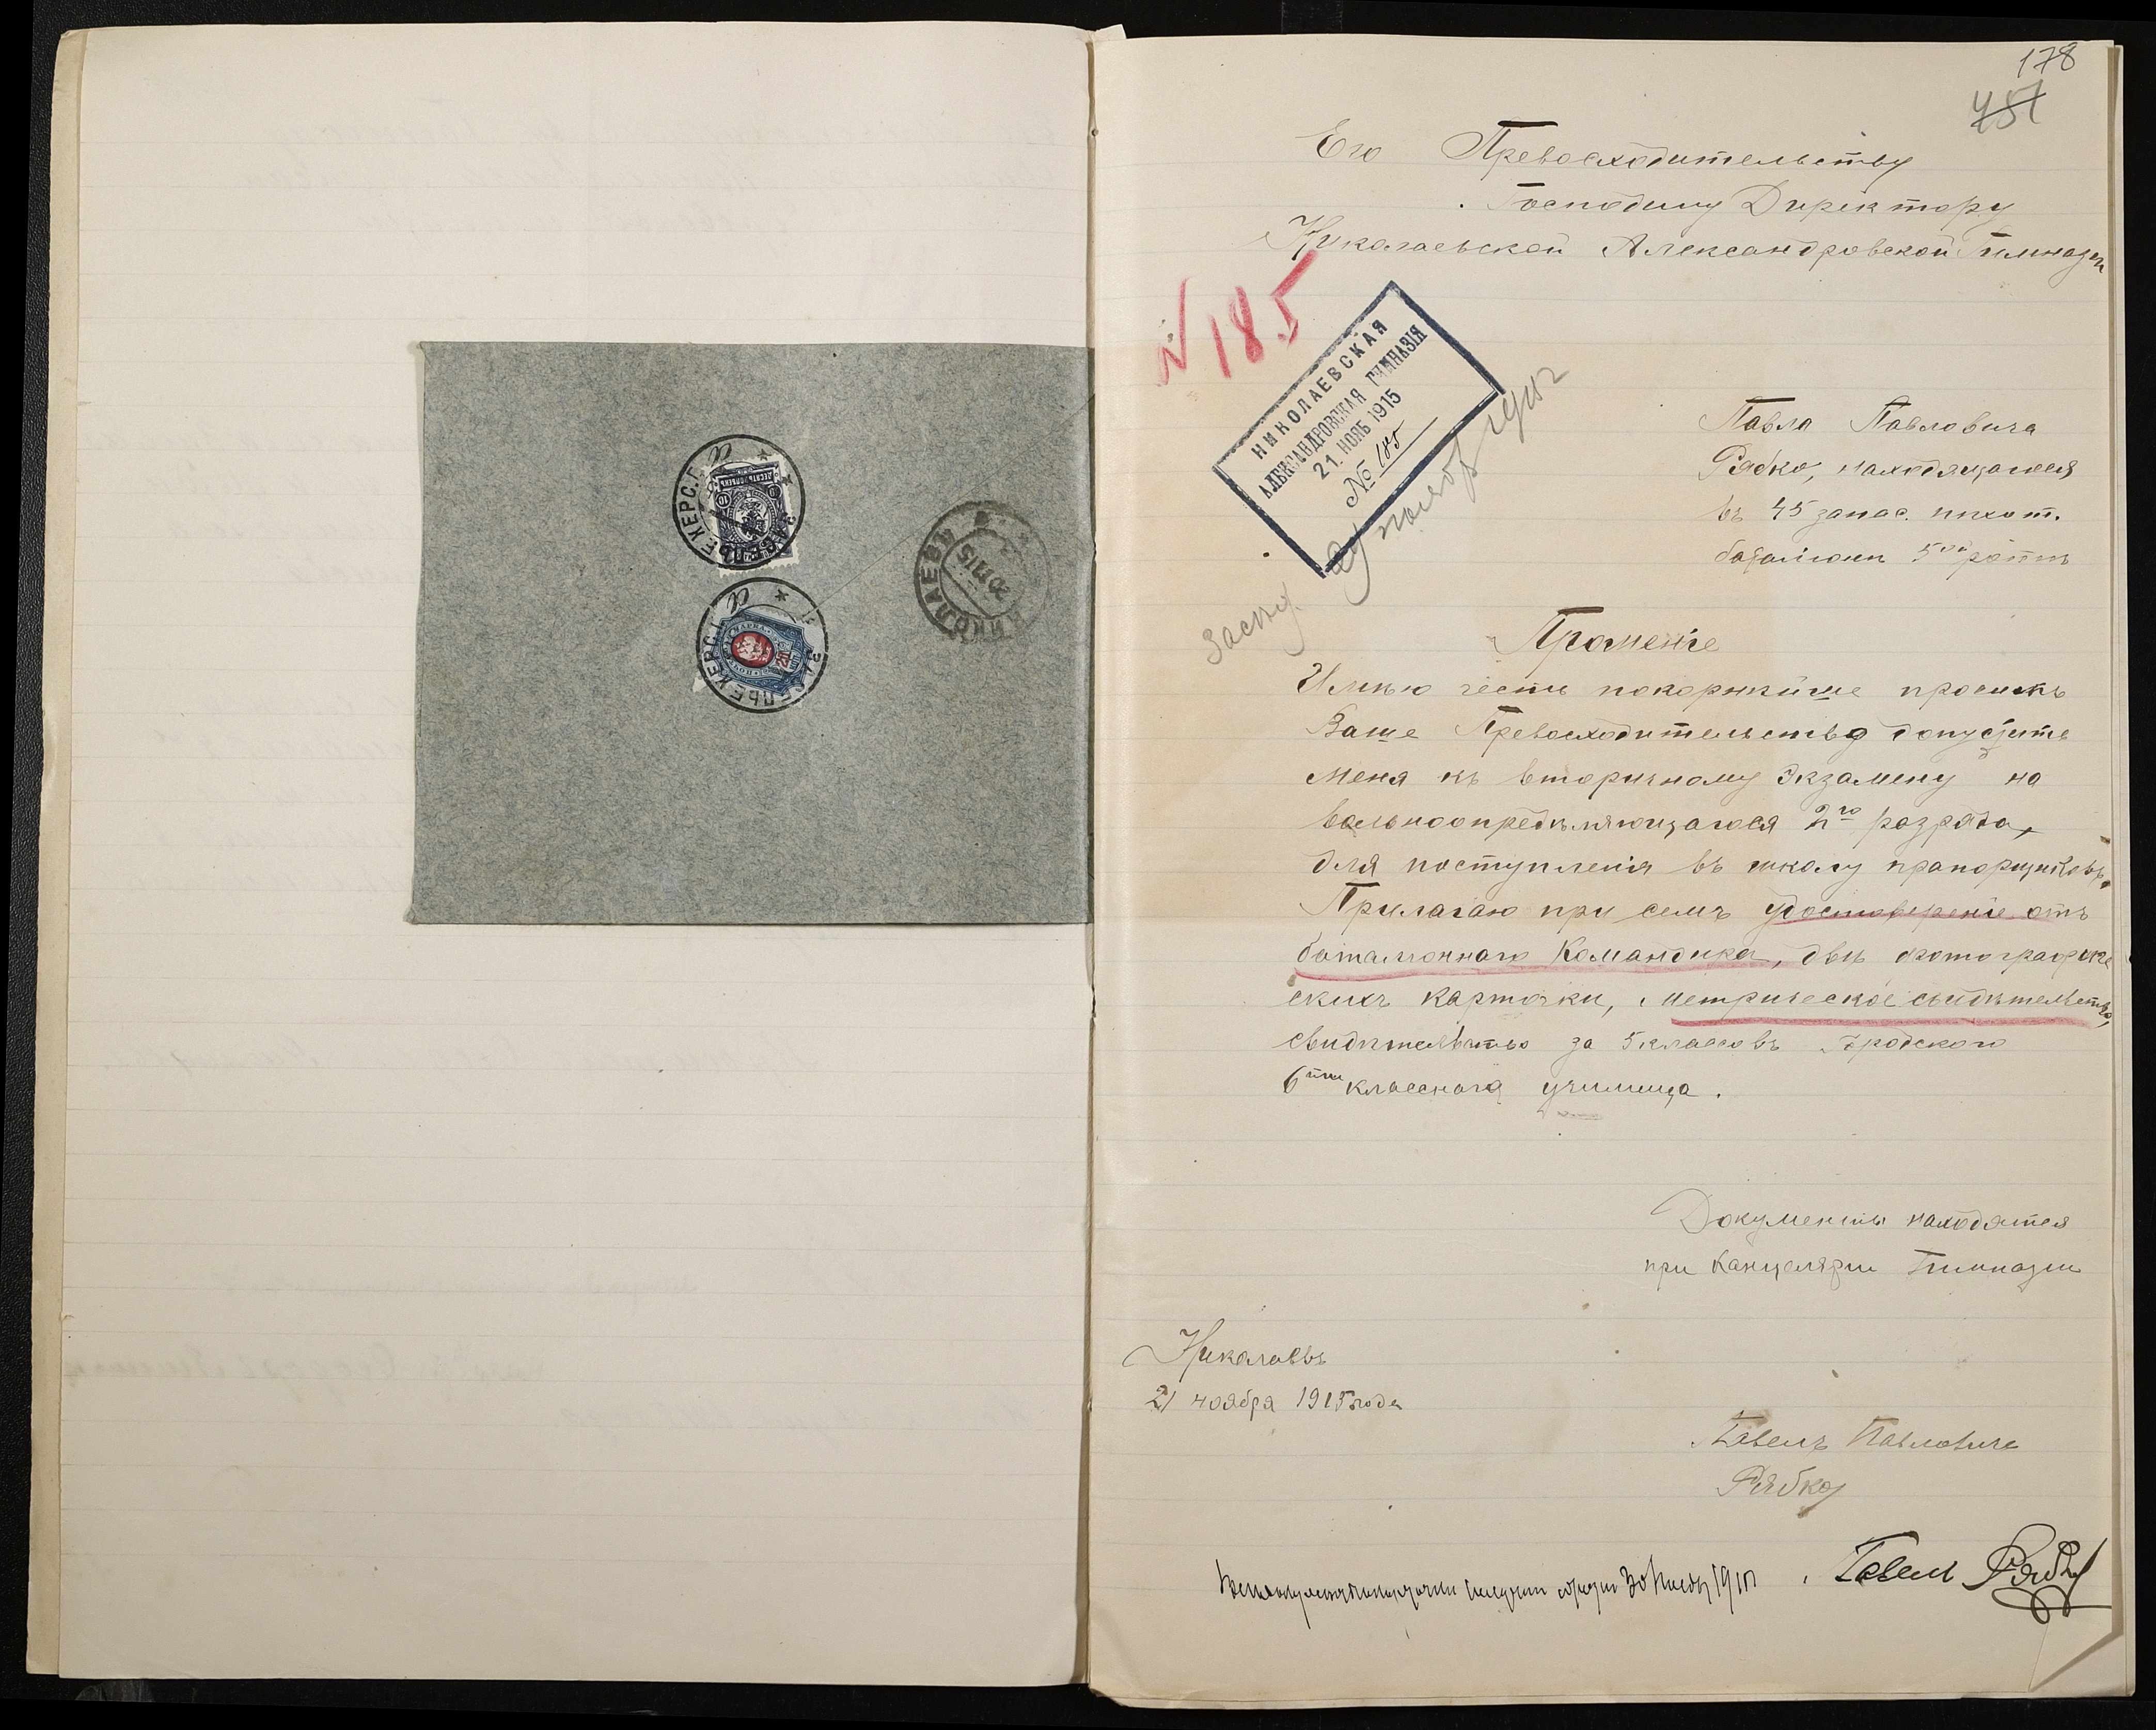 КЕРС.Г.
ДЕСЯТЬ КОПѢЕКЪ
10
КЕРС.Г.
20
НИКОЛАЕВЪ
20 11 15
178
451
Его Превосходительству
Господину Директору
Николаевской Александровской Гимназіи
N 185
НИКОЛАЕВСКАЯ
АЛЕКСАНДРОВСКАЯ ГИМНАЗІЯ
21. НОЯБ 1915
№ 185
Павла Павловича
Рябко, находящагося
въ 45 запас. пихот.
баталіонн 5ой роты
Прошеніе
Имѣю честь покорнѣйше просить
Ваше Превосходительство допустите
меня къ вторичному экзамену на
вольноопредѣляющагося 2го разряда,
для поступленія въ школу прапорщиковъ.
Прилагаю при семъ удостовереніе отъ
баталіоннаго Командира, двѣ фотографиче
скихъ карточки, метрическое свидѣтельство,
свидѣтельство за 5 классовъ Городского
6ти класснаго училища.
Документы находятся
при Канцелярии Гимназии
Николаевъ
21 ноября 1915 года
Павелъ Павловичъ
Рябко
1915
Павелъ Рябко